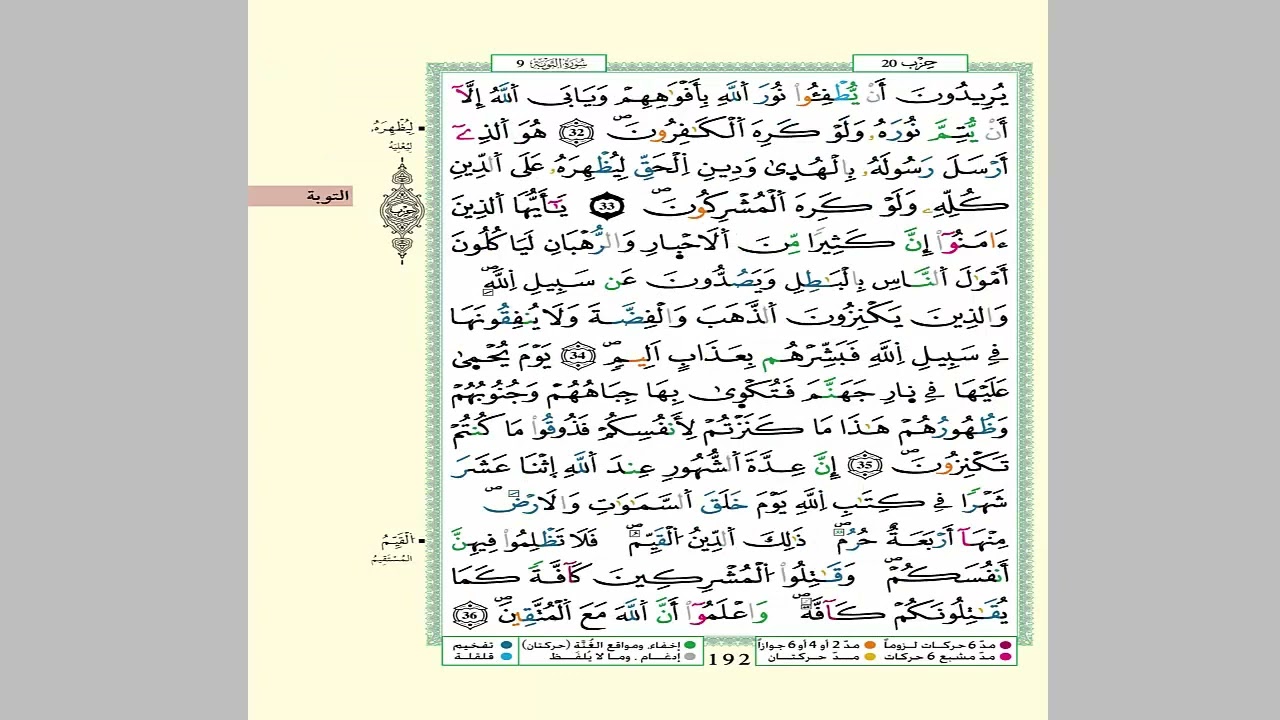 سُورَةُ التَّوْبَةِ 9
حِزْب 20
يُرِيدُونَ أَنْ يُّطْفِـُٔواْ نُورَ اَ۬للَّهِ بِأَفْوَٰهِهِمْ وَيَابَى اَ۬للَّهُ إِلَّآ
أَنْ يُّتِمَّ نُورَهُۥ وَلَوْ كَرِهَ اَ۬لْكَٰفِرُونَۖ 32 هُوَ اَ۬لذِےٓ
أَرْسَلَ رَسُولَهُۥ بِالْهُد۪ىٰ وَدِينِ اِ۬لْحَقِّ لِيُظْهِرَهُۥ عَلَى اَ۬لدِّينِ
كُلِّهِۦ وَلَوْ كَرِهَ اَ۬لْمُشْرِكُونَۖ 33 يَٰٓأَيُّهَا اَ۬لذِينَ
ءَامَنُوٓاْ إِنَّ كَثِيراٗ مِّنَ اَ۬لَاحْب۪ارِ وَالرُّهْبَانِ لَيَاكُلُونَ
أَمْوَٰلَ اَ۬لنَّاسِ بِالْبَٰطِلِ وَيَصُدُّونَ عَن سَبِيلِ اِ۬للَّهِۖ
وَالذِينَ يَكْنِزُونَ اَ۬لذَّهَبَ وَالْفِضَّةَ وَلَا يُنفِقُونَهَا
فِے سَبِيلِ اِ۬للَّهِ فَبَشِّرْهُم بِعَذَابٍ اَلِيمٖۖ 34 يَوْمَ يُحْم۪ىٰ
عَلَيْهَا فِے ن۪ارِ جَهَنَّمَ فَتُكْو۪ىٰ بِهَا جِبَاهُهُمْ وَجُنُوبُهُمْ
وَظُهُورُهُمْ هَٰذَا مَا كَنَزْتُمْ لِأَنفُسِكُمْ فَذُوقُواْ مَا كُنتُمْ
تَكْنِزُونَۖ 35 إِنَّ عِدَّةَ اَ۬لشُّهُورِ عِندَ اَ۬للَّهِ اِ۪ثْنَا عَشَرَ
شَهْراٗ فِے كِتَٰبِ اِ۬للَّهِ يَوْمَ خَلَقَ اَ۬لسَّمَٰوَٰتِ وَالَارْضَۖ
مِنْهَآ أَرْبَعَةٌ حُرُمٞۖ ذَٰلِكَ اَ۬لدِّينُ اُ۬لْقَيِّمُۖ فَلَا تَظْلِمُواْ فِيهِنَّ
أَنفُسَكُمْۖ وَقَٰتِلُواْ اُ۬لْمُشْرِكِينَ كَآفَّةٗ كَمَا
يُقَٰتِلُونَكُمْ كَآفَّةٗۖ وَاعْلَمُوٓاْ أَنَّ اَ۬للَّهَ مَعَ اَ۬لْمُتَّقِينَۖ 36
لِيُظْهِرَهُۥ
لِيُعْلِيَهُ
التوبة
حِزْب
اُ۬لْقَيِّمُ
المُسْتَقِيمُ
مدّ 6 حركات لزوماً مدّ 2 أو 4 أو 6 جوازاً
مدّ مشبع 6 حركات مدّ حركتان
192
إخفاء، ومواقع الغُنَّة (حركتان) تفخيم
إدغام، وما لا يُلفَظ قلقلة